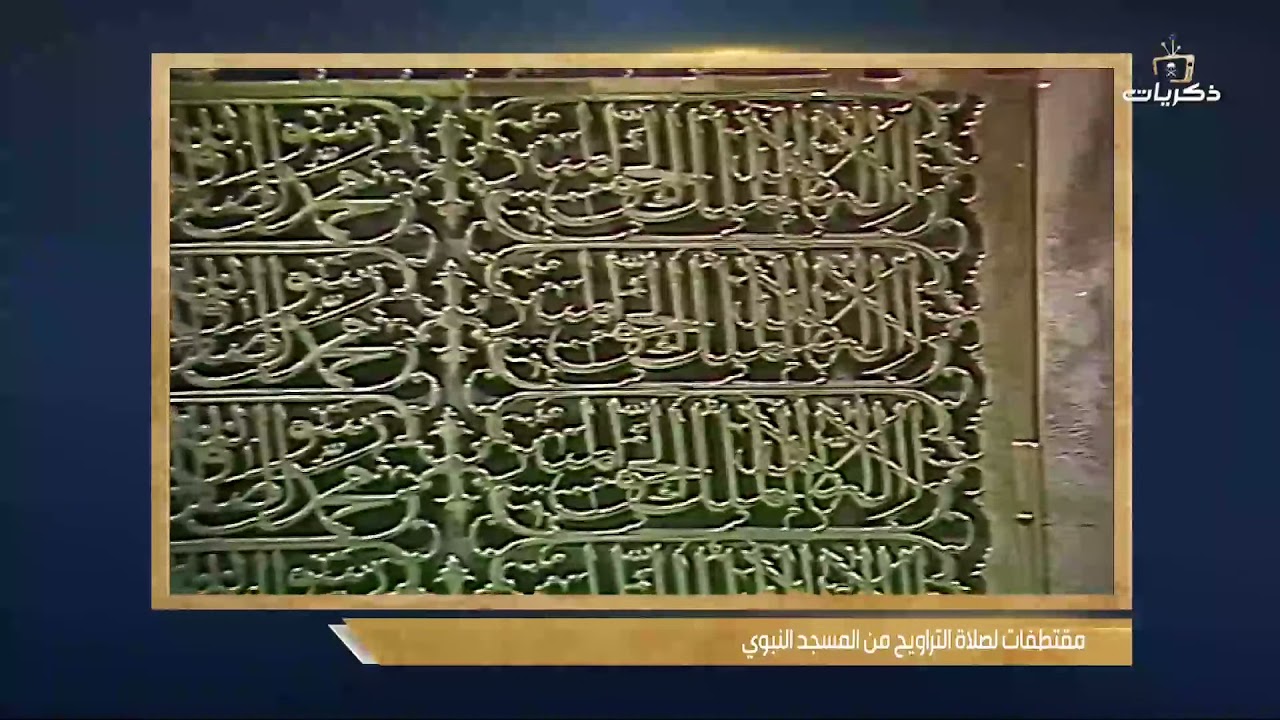 ذكريات
لا إله إلا الله الملك الحق المبين محمد رسول الله
لا إله إلا الله الملك الحق المبين محمد رسول الله
لا إله إلا الله الملك الحق المبين محمد رسول الله
مقتطفات لصلاة التراويح من المسجد النبوي